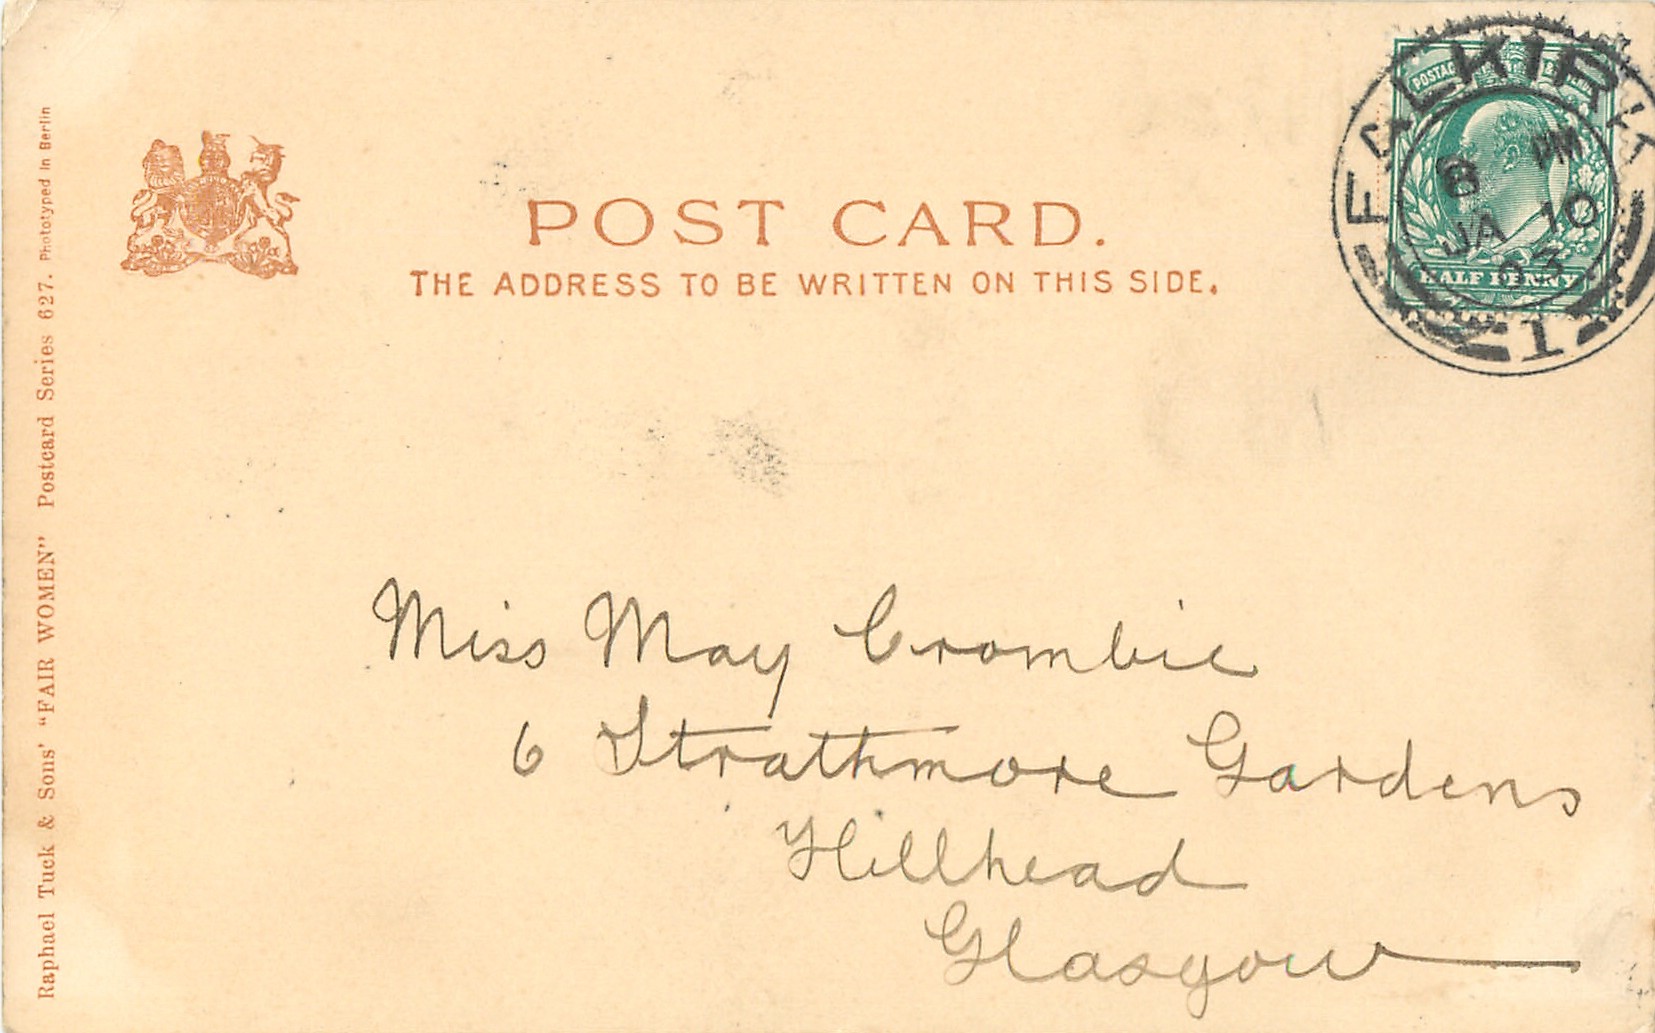 POST CARD.
THE ADDRESS TO BE WRITTEN ON THIS SIDE.
Raphael Tuck & Sons' "FAIR WOMEN" Postcard Series 627. Phototyped in Berlin
FALKIRK
8 PM
JA 10
03
1
HALF PENNY
Miss May Crombie
6 Strathmore Gardens
Hillhead
Glasgow